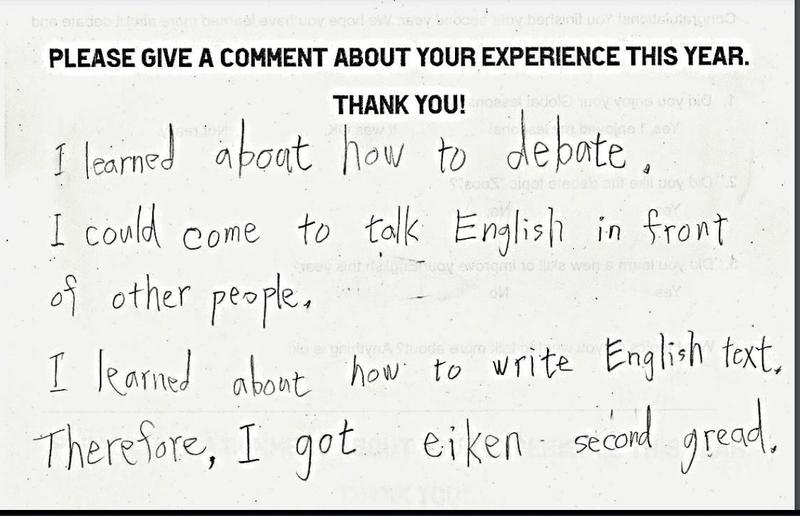 PLEASE GIVE A COMMENT ABOUT YOUR EXPERIENCE THIS YEAR.
THANK YOU!
I learned aboat how to debate.
I could come to talk English in front
of other people.
I learned about how to write English text.
Therefore, I got eiken second gread.